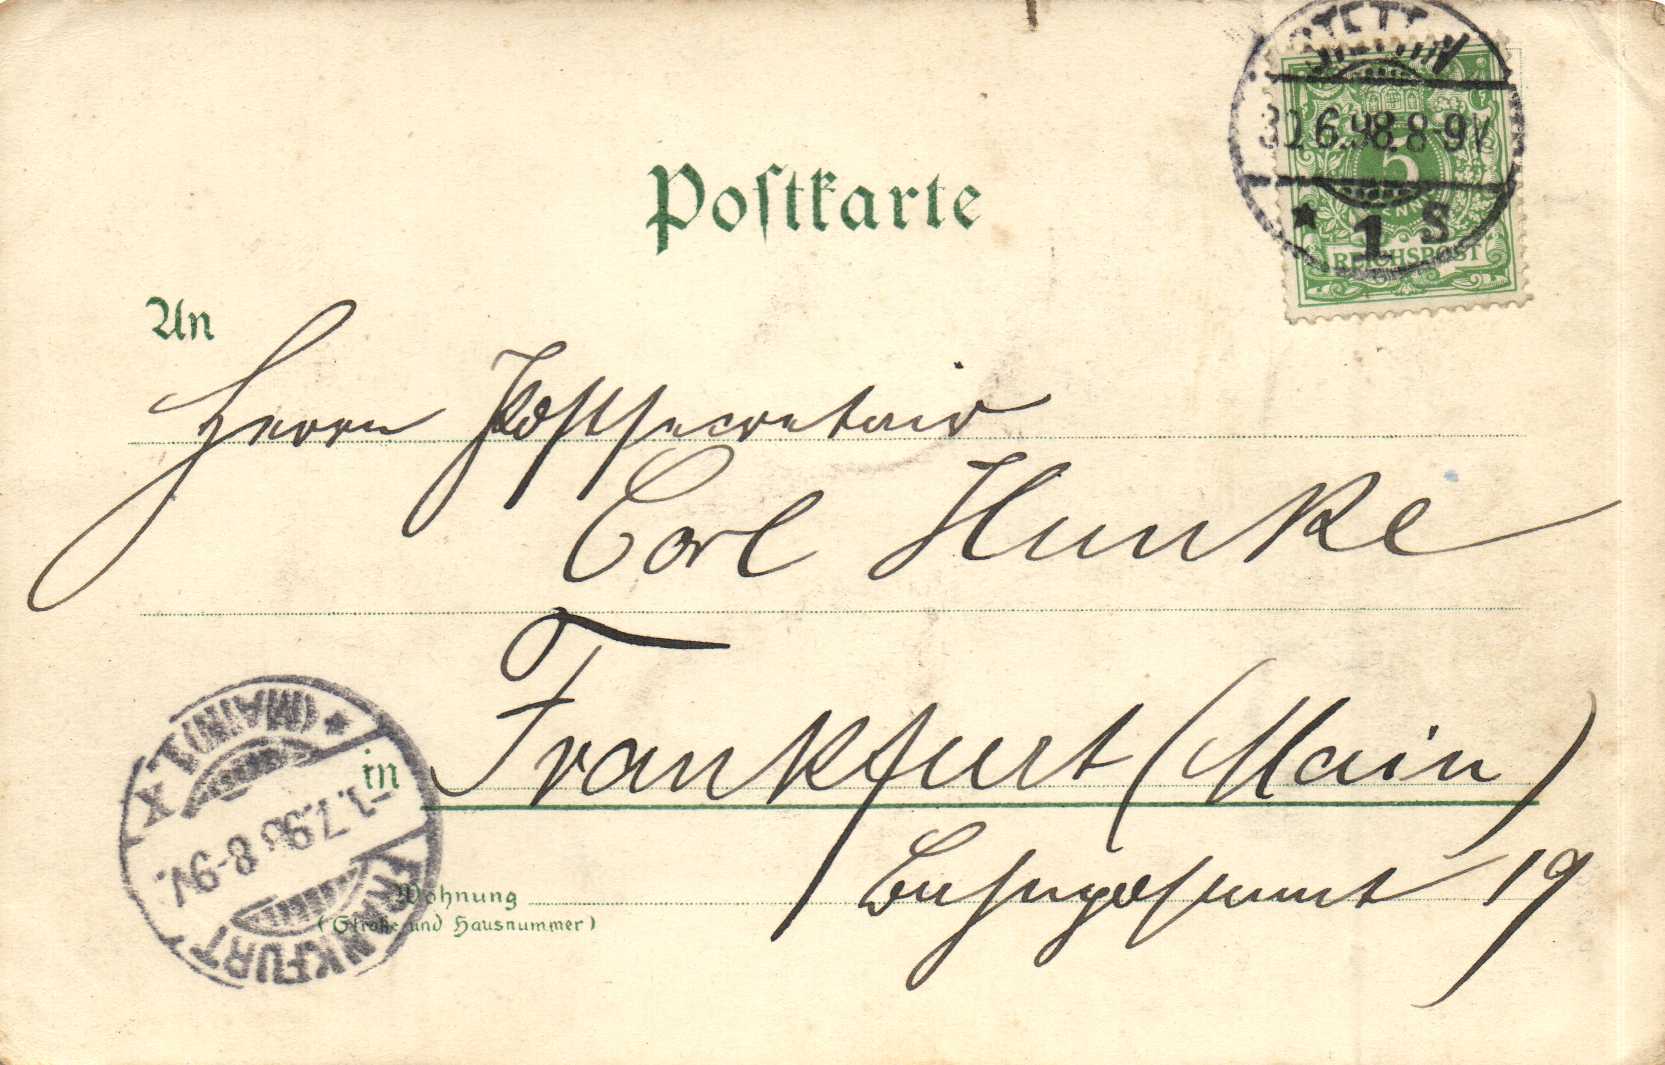 STETTIN
30.6.98.8-9V
* 1 S
5
REICHSPOST
Postkarte
An
Herrn Postsecretair
Carl Hunke
in Frankfurt (Main)
Wohnung
(Straße und Hausnummer)
19
FRANKFURT
-1.7.98 8-9V.
* (MAIN) 1. X